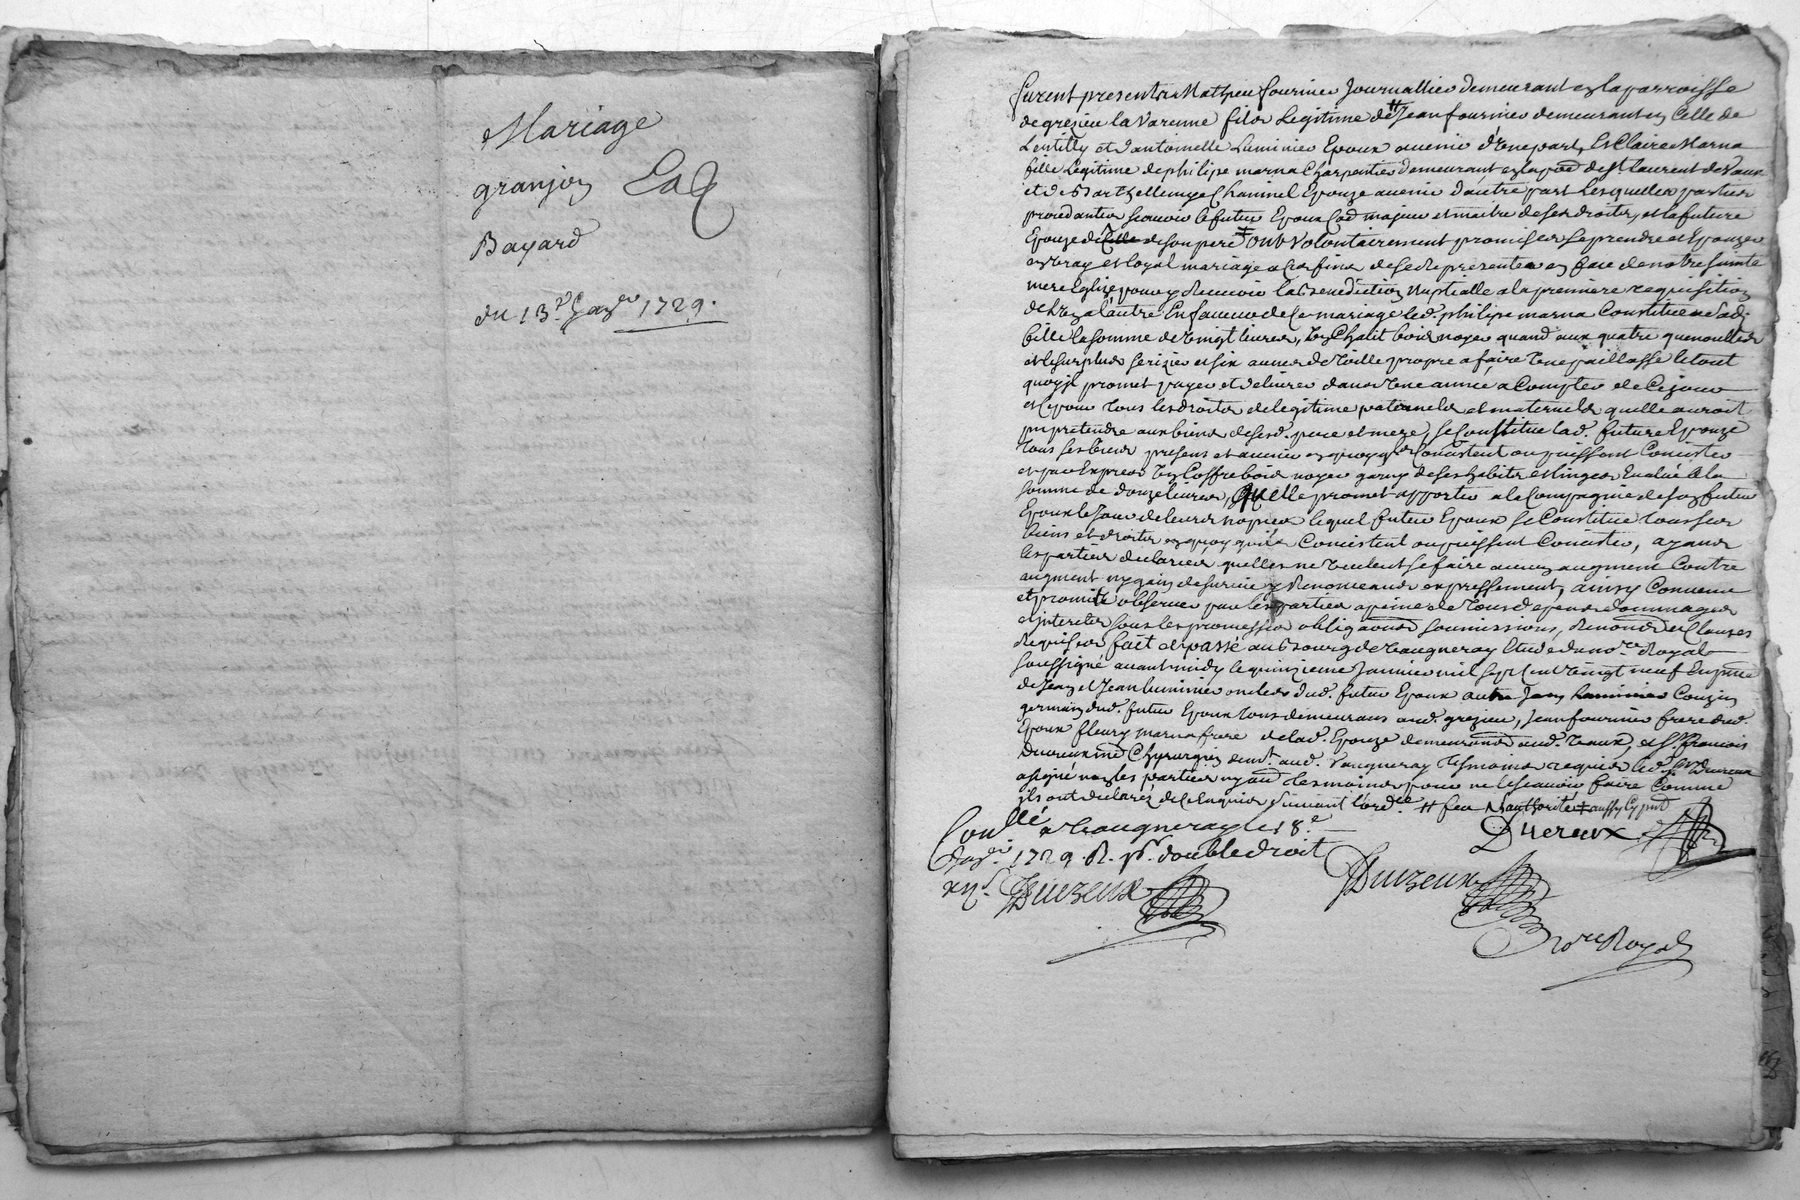 Mariage
granjon
Bayard
du 13.e Janver 1729.
furent presents Mathieu fournier Journallier demeurant en la parroisse
de grezieu la Varenne fils Legitime de # Jean fournier demeurant en Celle de
Lentilly et d'antoinette Luminier Epoux avenir d'une part, Et Claire Marna
fille Legitime de philipe marna Charpentier demeurant en la pսse de St laurent de Vaux
et de Barthellemye Chaninel Epouze avenir d'autre part Lesquelles parties
procedantes scavoir le futur Epoux Co͞e majeur et maitre de ses droits, et la future
Epouze de son pere ‡ ont volontairement promis de se prendre et Epouzer
en vray et loyal mariage a Ces fins de se representer en face de notre sainte
mere Eglise pour y Recevoir la Benediction Nuptialle a la premiere requisition
de l'un a l'autre En faveur de Ce mariage led. philipe marna Constitue a sad.
fille la somme de vingt livres, un Chalit bois noyer quand aux quatre quenouilles
et le surplus serizier et six aunes de toille propre a faire une paillasse le tout
quoy il promet payer et delivrer dans une année a Compter de Ce jour
et Ce pour tous les droits de legitime paternels et maternels quelle auroit
pu pretendre aux biens de sesd. pere et mere, se Constitue lad. future Epouze
tous ses biens presens et avenir en quoy qu'ils Concistent ou puissent Concister
et par Expres un Coffre bois noyer garny de ses habits et linges Evalué a la
somme de douze livres, quelle promet apporter a la Compagnie de son futur
Epoux le Jour de leurs nopces lequel futur Epoux se Constitue tous ses
biens et droits en quoy qu'ils Concistent ou puissent Concister, ayant
les parties declarées quelles ne veulent se faire aucun augment Contre
augment ny gain de survie y Renonceant expressement, ainsy Convenu
et promis observer par les parties a peine de tous depens dommages
et interets sous les promesses obligaōns soumissions, Renonōns et Clauses
Requises fait et passé au Bourg de Vaugneray Etude du no.re Royal
soussigné avant midy le quinzieme Janvier mil sept Cent vingt neuf En pnce
de Jean et Jean luminier oncles dud. futur Epoux autre Jean Luminier Couzin
germain dud. futur Epoux tous demeurans aud. grezieu, Jean fournier frere dud.
Epoux fleury marna frere de lad. Epouze demeurant aud. Vaux, et Sr. francois
Duvreux me Chyrurgien demt. aud. Vaugneray tesmoins requis led. Sr Duvreux
a signé non les parties ny aud. tesmoins pour ne le scavoir faire Comme
ils ont declarez de Ce Enquis suivant l'ord.ce # feu ‡ authorité ‡ aussy Cy pnt
Conllé a Vaugneray le 18.e
Janver. 1729 R. pr. double droit
Duvreux